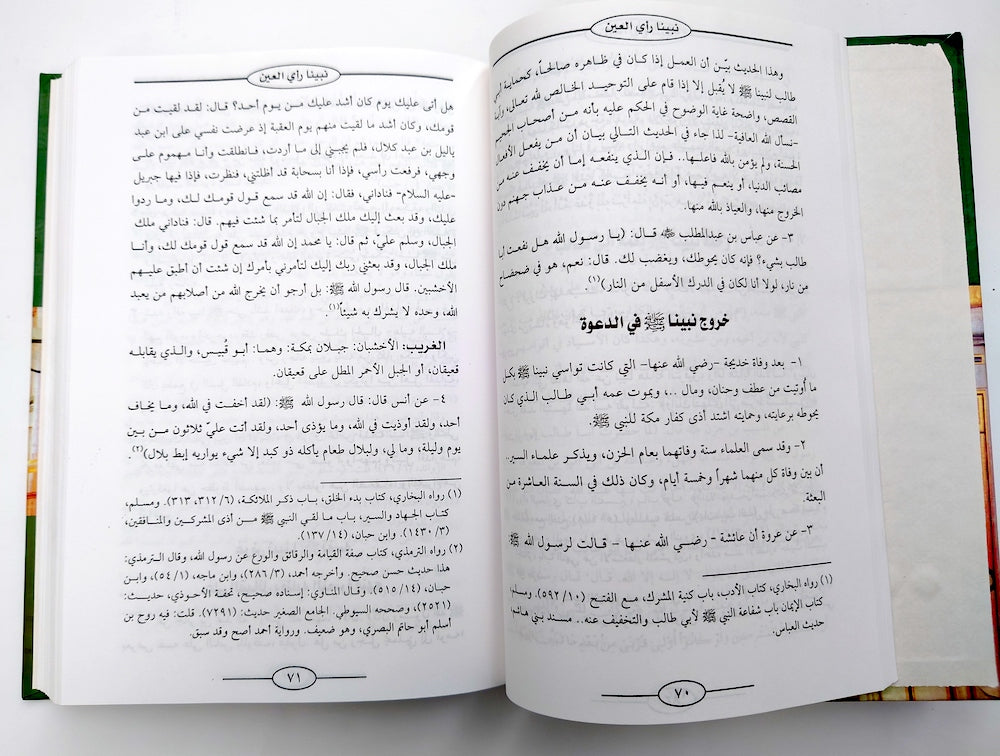 نبينا رأي العين
وهذا الحديث بيّن أن العمل إذا كان في ظاهره صالحاً، كحماية أبي
طالب لنبينا ﷺ لا يُقبل إلا إذا قام على التوحيد الخالص لله تعالى، وأية
القصص، واضحة غاية الوضوح في الحكم عليه بأنه من أصحاب الجحيم
-نسأل الله العافية- لذا جاء في الحديث التالي بيان أن من يفعل الأفعال
الحسنة، ولم يؤمن بالله فاعلها.. فإن الذي ينفعه إما أن يخفف عنه من
مصائب الدنيا، أو ينعم فيها، أو أنه يخفف عنه من عذاب جهنم دون
الخروج منها، والعياذ بالله منها.
٣- عن عباس بن عبدالمطلب ﷺ قال: (يا رسول الله هل نفعت أبا
طالب بشيء؟ فإنه كان يحوطك، ويغضب لك. قال: نعم، هو في ضحضاح
من نار، لولا أنا لكان في الدرك الأسفل من النار)(١).
خروج نبينا ﷺ في الدعوة
١- بعد وفاة خديجة -رضي الله عنها- التي كانت تواسي نبينا ﷺ بكل
ما أُوتيت من عطف وحنان، ومال ..، وبموت عمه أبي طالب الذي كان
يحوطه برعايته، وحمايته اشتد أذى كفار مكة للنبي ﷺ.
٢- وقد سمى العلماء سنة وفاتهما بعام الحزن، ويذكر علماء السير..
أن بين وفاة كل منهما شهراً وخمسة أيام، وكان ذلك في السنة العاشرة من
البعثة.
٣- عن عروة أن عائشة - رضي الله عنها - قالت لرسول الله ﷺ
(١) رواه البخاري، كتاب الأدب، باب كنية المشرك، مع الفتح (٥٩٢/١٠). ومسلم،
كتاب الإيمان باب شفاعة النبي ﷺ لأبي طالب والتخفيف عنه.. مسند بني هاشم،
حديث العباس.
٧٠
نبينا رأي العين
هل أتى عليك يوم كان أشد عليك من يوم أحد؟ قال: لقد لقيت من
قومك، وكان أشد ما لقيت منهم يوم العقبة إذ عرضت نفسي على ابن عبد
ياليل بن عبد كلال، فلم يجبني إلى ما أردت، فانطلقت وأنا مهموم على
وجهي، فرفعت رأسي، فإذا أنا بسحابة قد أظلتني، فنظرت، فإذا فيها جبريل
-عليه السلام- فناداني، فقال: إن الله قد سمع قول قومك لك، وما ردوا
عليك، وقد بعث إليك ملك الجبال لتأمر بما شئت فيهم. قال: فناداني ملك
الجبال، وسلم عليّ، ثم قال: يا محمد إن الله قد سمع قول قومك لك، وأنا
ملك الجبال، وقد بعثني ربك إليك لتأمرني بأمرك إن شئت أن أطبق عليهم
الأخشبين. قال رسول الله ﷺ: بل أرجو أن يخرج الله من أصلابهم من يعبد
الله، وحده لا يشرك به شيئاً(١).
الغريب: الأخشبان: جبلان بمكة: وهما: أبو قُبيس، والذي يقابله
قعيقان، أو الجبل الأحمر المطل على قعيقان.
٤- عن أنس قال: قال رسول الله ﷺ: (لقد أخفت في الله، وما يخاف
أحد، ولقد أوذيت في الله، وما يؤذى أحد، ولقد أتت عليّ ثلاثون من بين
يوم وليلة، وما لي، ولبلال طعام يأكله ذو كبد إلا شيء يواريه إبط بلال)(٢).
(١) رواه البخاري، كتاب بدء الخلق، باب ذكر الملائكة، (٣١٢/٦، ٣١٣). ومسلم،
كتاب الجهاد والسير، باب ما لقي النبي ﷺ من أذى المشركين والمنافقين،
(١٤٣٠/٣). وابن حبان، (١٣٧/١٤).
(٢) رواه الترمذي، كتاب صفة القيامة والرقائق والورع عن رسول الله، وقال الترمذي:
هذا حديث حسن صحيح. وأخرجه أحمد، (٢٨٦/٣)، وابن ماجه، (٥٤/١)، وابن
حبان، (٥١٥/١٤). وقال المناوي: إسناده صحيح، تحفة الأحوذي، حديث:
(٢٥٢١)، وصححه السيوطي. الجامع الصغير حديث: (٧٢٩١). قلت: فيه روح بن
أسلم أبو حاتم البصري، وهو ضعيف. ورواية أحمد أصح وقد سبق.
٧١